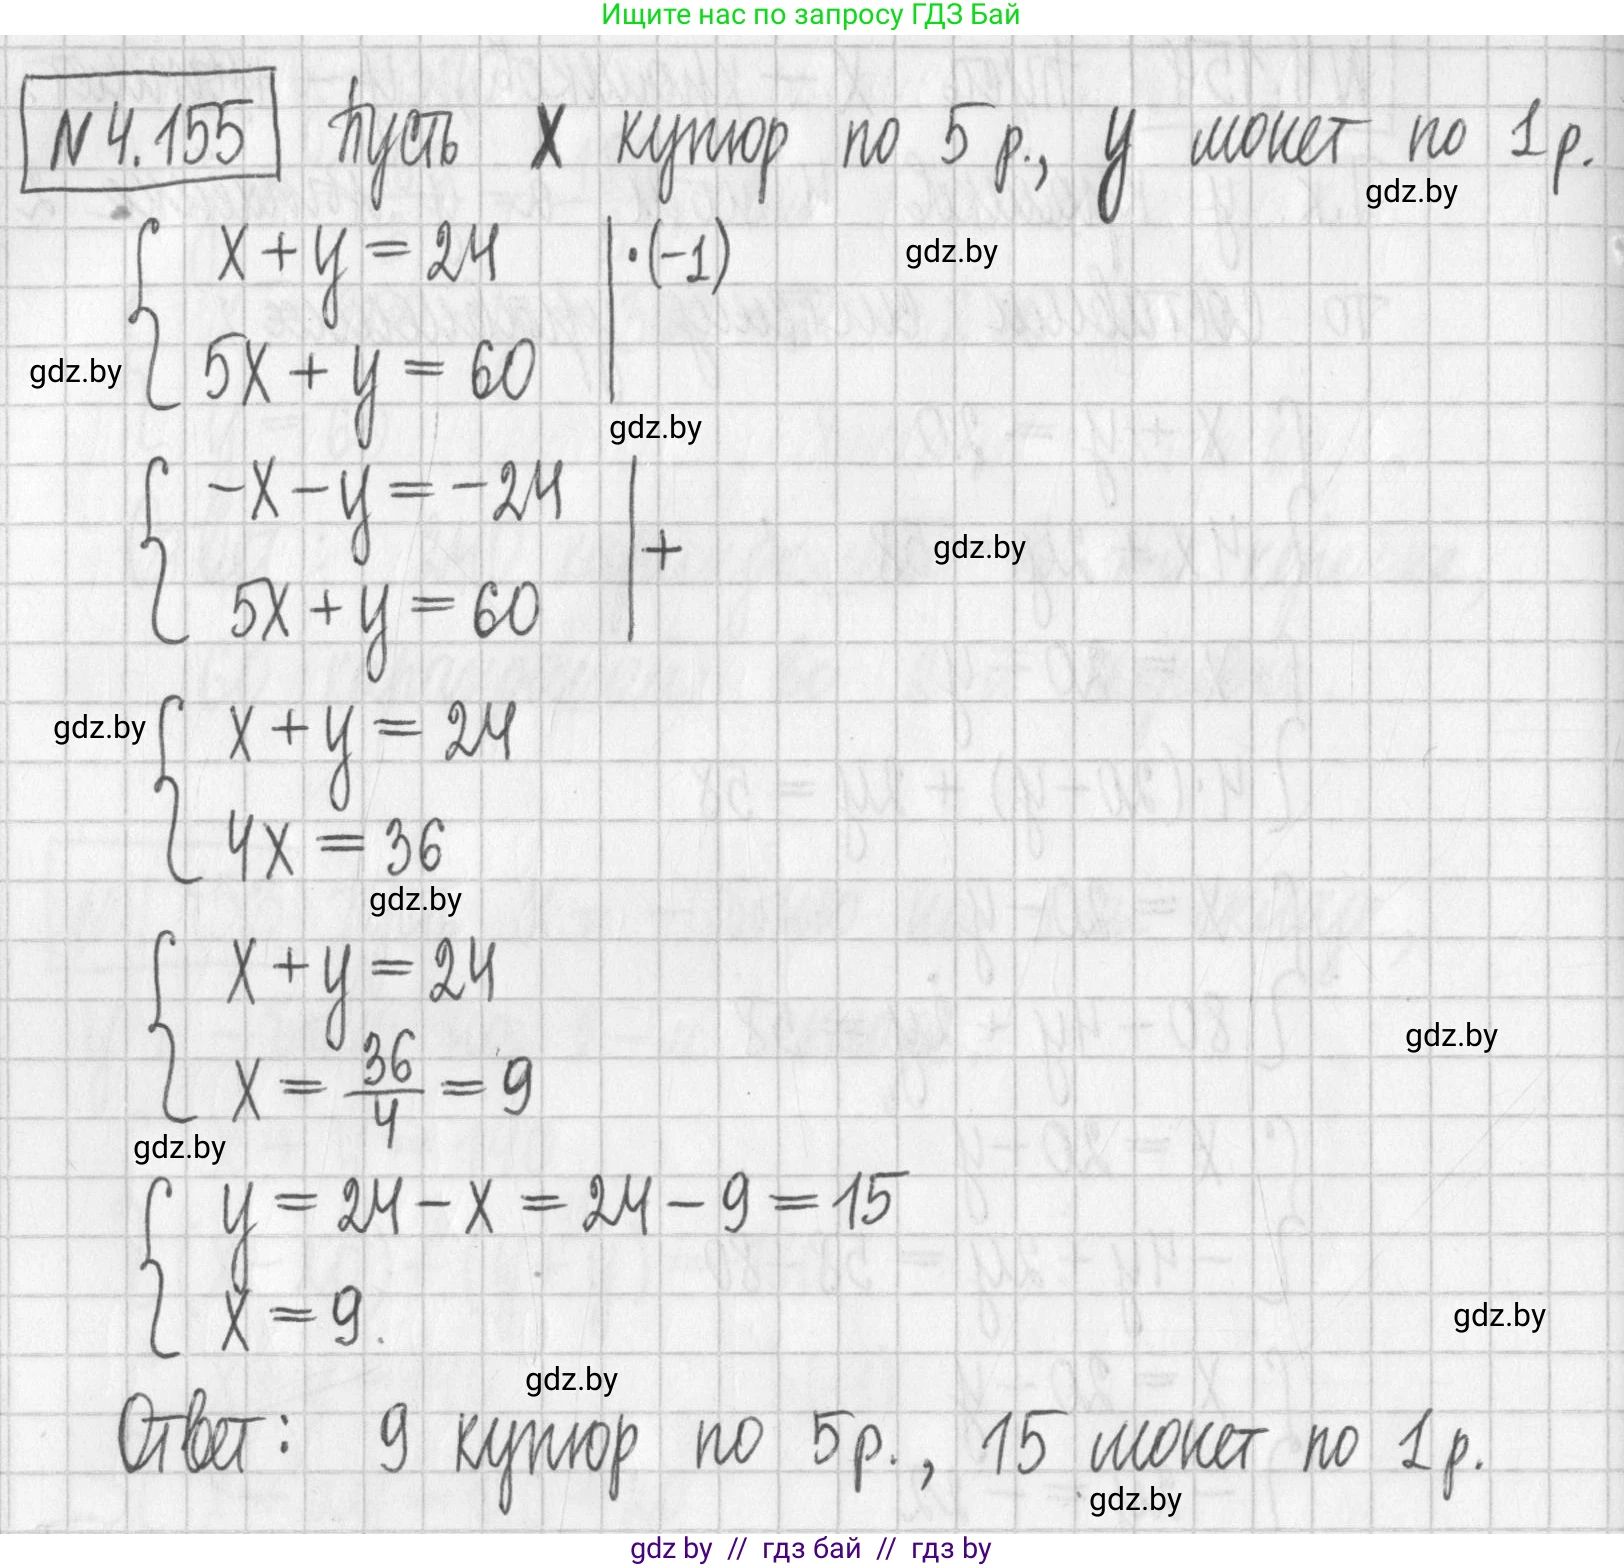 Ищите нас по запросу ГДЗ Бай
N 4.155 Пусть x купюр по 5 р., y монет по 1 р.
gdz.by
x + y = 24 | · (-1)
gdz.by
5x + y = 60
gdz.by
gdz.by
-x - y = -24
+
gdz.by
5x + y = 60
x + y = 24
gdz.by
4x = 36
gdz.by
x + y = 24
gdz.by
x = 36/4 = 9
gdz.by
y = 24 - x = 24 - 9 = 15
x = 9.
gdz.by
gdz.by
Ответ: 9 купюр по 5 р., 15 монет по 1 р.
gdz.by
gdz by // гдз бай // гдз by